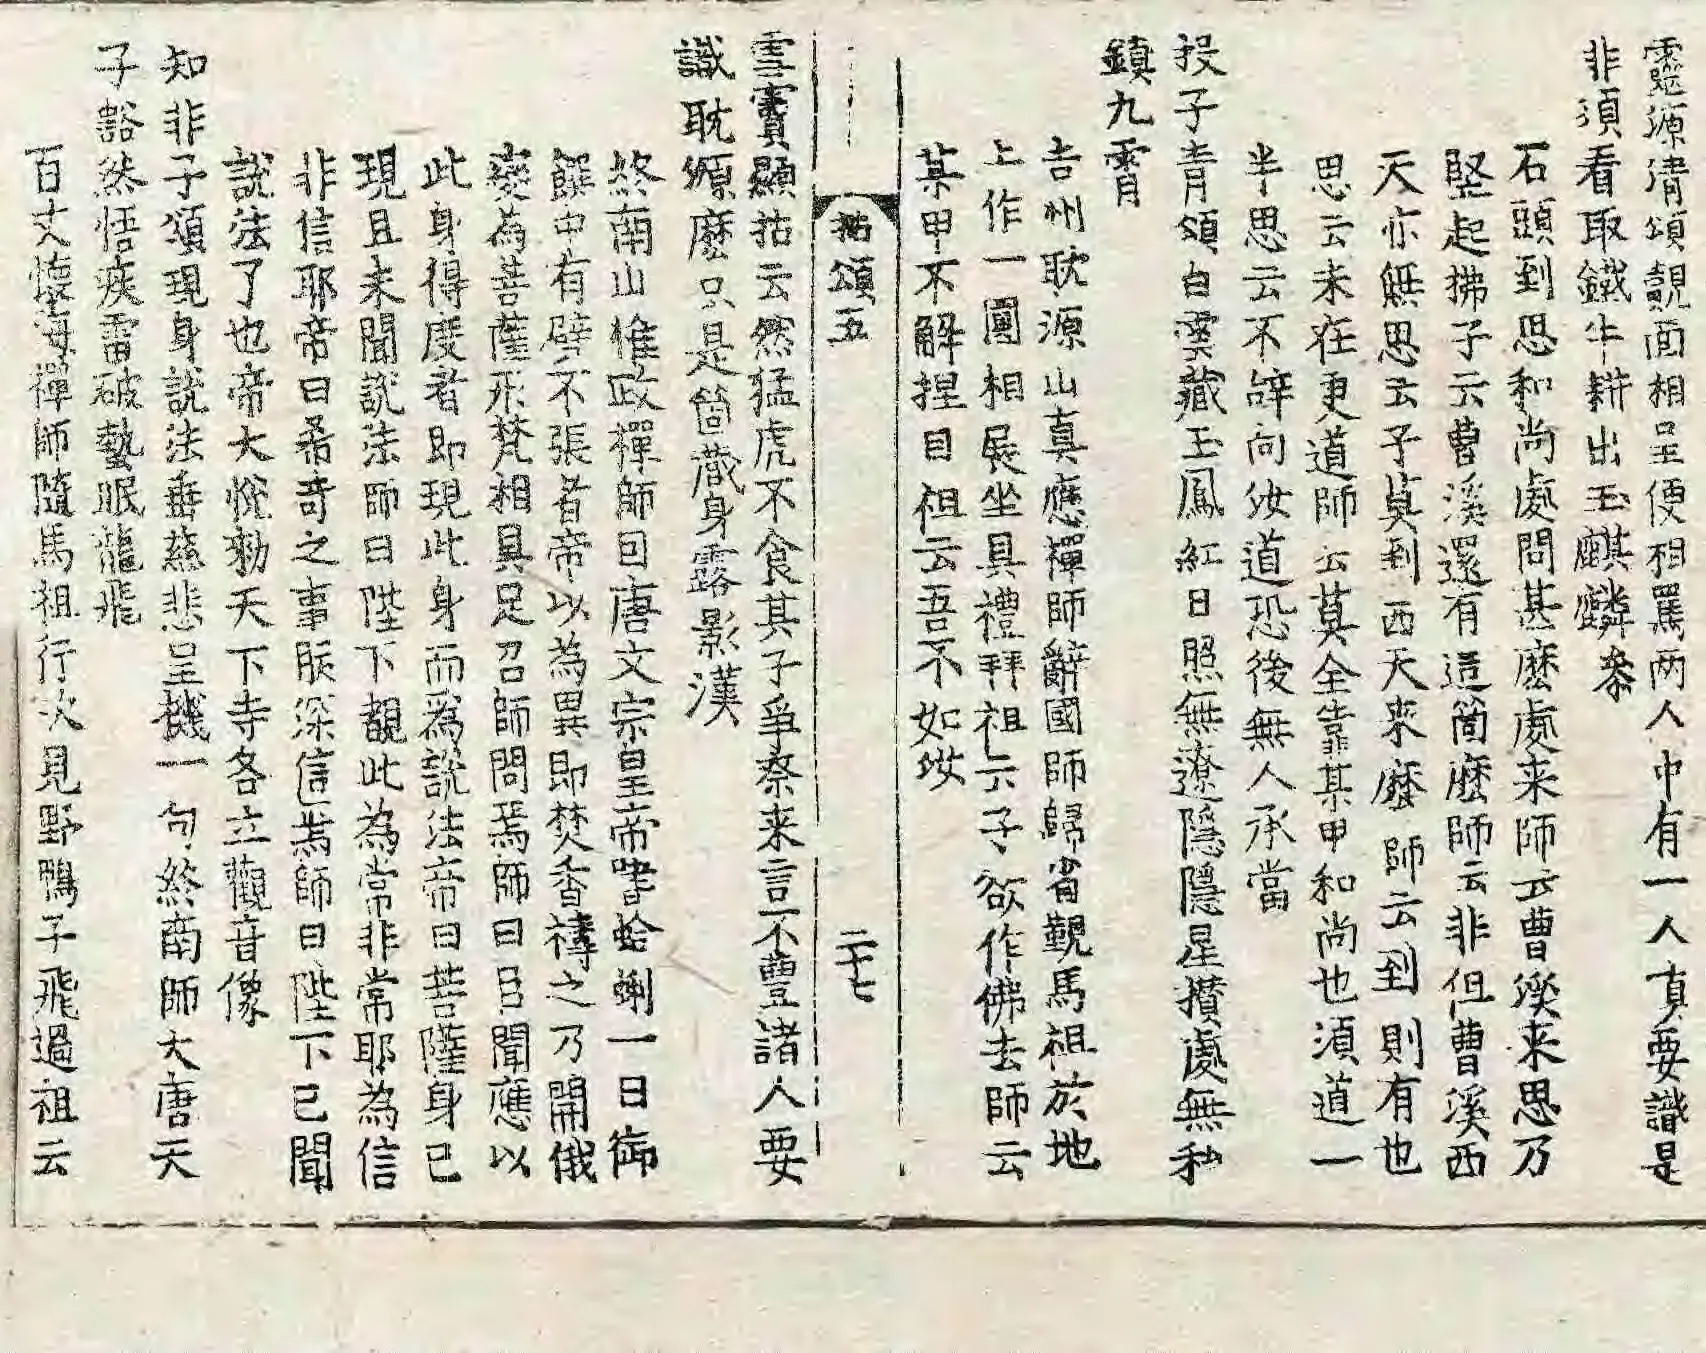 靈源清頌覿面相呈便相罵两人中有一人真要識是
非須看取鐵牛耕出玉麒麟叅
石頭到思和尚處問甚麽處来師云曹溪来思乃
竪起拂子云曹溪還有這箇麽師云非但曹溪西
天亦無思云子莫到西天来麽師云到則有也
思云未在更道師云莫全靠某甲和尚也須道一
半思云不辝向汝道恐後無人承當
投子青頌白雲藏玉鳳紅日照無遼隱隱星攅處無私
鎮九霄
吉州耽源山真應禪師辭國師歸省覲馬祖於地
上作一圓相展坐具禮拜祖云子欲作佛去師云
某甲不解捏目祖云吾不如汝
拈頌五
二十七
雪竇顯拈云然猛虎不食其子爭柰来言不豊諸人要
識耽源麽只是箇藏身露影漢
終南山惟政禪師因唐文宗皇帝嗜蛤蜊一日御
饌中有擘不張者帝以為異即焚香禱之乃開俄
變為菩薩形梵相具足召師問焉師曰臣聞應以
此身得度者即現此身而為說法帝曰菩薩身已
現且未聞說法師曰陛下覩此為常非常耶為信
非信耶帝曰希奇之事朕深信焉師曰陛下已聞
說法了也帝大悅勑天下寺各立觀音像
知非子頌現身說法垂慈悲呈機一句終南師大唐天
子豁然悟疾雷破蟄眠龍飛
百丈懷海禪師隨馬祖行次見野鴨子飛過祖云